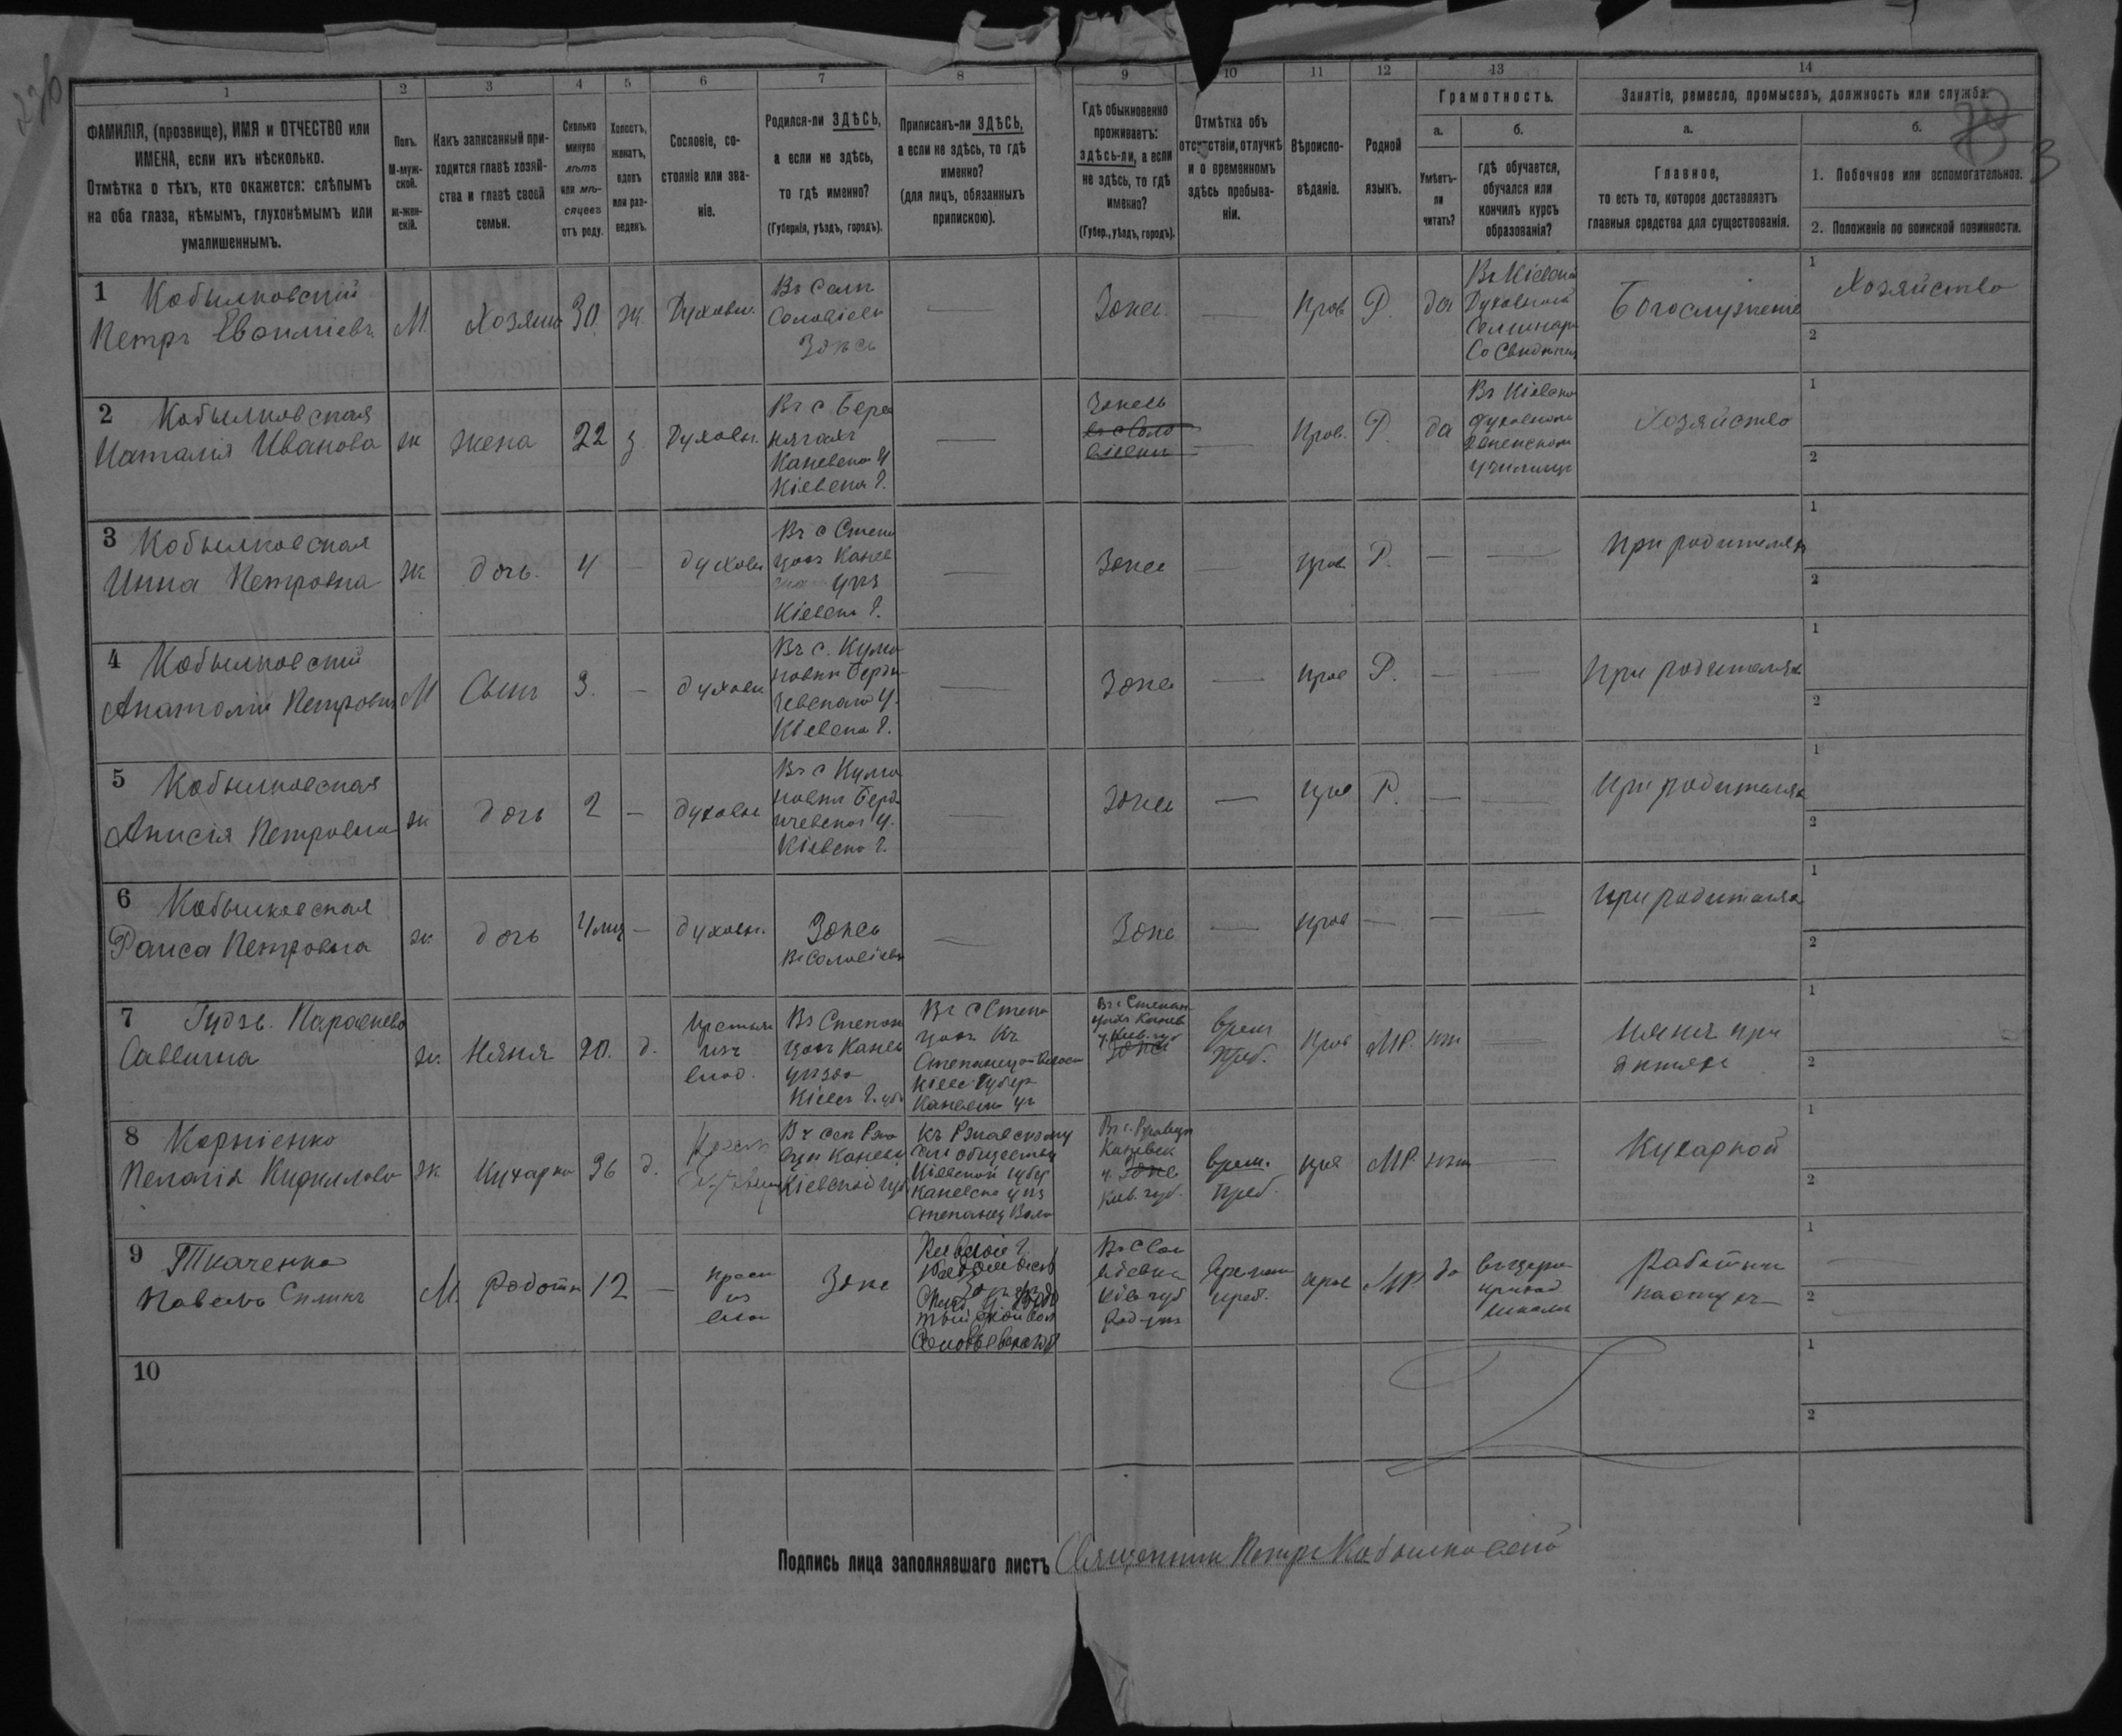 1
2
3
4
5
6
7
8
9
10
11
12
13
14
ФАМИЛІЯ, (прозвище), ИМЯ и ОТЧЕСТВО или
ИМЕНА, если ихъ нѣсколько.
Отмѣтка о тѣхъ, кто окажется: слѣпымъ
на оба глаза, нѣмымъ, глухонѣмымъ или
умалишеннымъ.
Полъ.
М-муж-
ской.
ж-жен-
скій.
Какъ записанный при-
ходится главѣ хозяй-
ства и главѣ своей
семьи.
Сколько
минуло
лѣтъ
или мѣ-
сяцевъ
отъ роду.
Холостъ,
женатъ,
вдовъ
или раз-
веденъ.
Сословіе, со-
стояніе или зва-
ніе.
Родился-ли ЗДѢСЬ,
а если не здѣсь,
то гдѣ именно?
(Губернія, уѣздъ, городъ).
Приписанъ-ли ЗДѢСЬ,
а если не здѣсь, то гдѣ
именно?
(для лицъ, обязанныхъ
припискою).
Гдѣ обыкновенно
проживаетъ:
здѣсь-ли, а если
не здѣсь, то гдѣ
именно?
(Губер., уѣздъ, городъ).
Отмѣтка объ
отсутствіи, отлучкѣ
и о временномъ
здѣсь пребыва-
ніи.
Вѣроиспо-
вѣданіе.
Родной
языкъ.
Грамотность.
а.
Умѣетъ-
ли
читать?
б.
гдѣ обучается,
обучался или
кончилъ курсъ
образованія?
Занятіе, ремесло, промыселъ, должность или служба.
а.
Главное,
то есть то, которое доставляетъ
главныя средства для существованія.
б.
1. Побочное или вспомогательное.
2. Положеніе по воинской повинности.
1 Кобылковскій
Петръ
М.
Хозяинъ
30
ж.
Духовн.
Въ Селѣ
Соловіевкѣ
Здѣсь
Здѣсь
Прав
Р.
да
Въ Кіевской
Духовной
Семинаріи
Богослуженіе
1
Хозяйство
2
2 Кобылковская
Наталія Иванова
ж
жена
22
з.
Духовн.
Въ с Бере
нягахъ
Каневскаго У
Кіевской Г.
Здѣсь
Прав.
Р.
да
Въ Кіевскомъ
духовномъ
женскомъ
училищѣ
Хозяйство
1
2
3 Кобылковская
Инна Петровна
ж
дочь.
4
духовн
Въ с Степан
цахъ Канев
скаго уѣз
Кіевской Г.
Здѣсь
прав
Р.
При родителяхъ
1
2
4 Кобылковскій
Анатолій Петровичъ
М
Сынъ
3.
духовн
Въ с. Кума
новкѣ Берди
чевскаго У.
Кіевской Г.
Здѣсь
прав
Р.
При родителяхъ
1
2
5 Кобылковская
Анисія Петровна
ж
дочь
2
духовн
Въ с Кума
новкѣ Берд
ичевскаго У.
Кіевской Г.
Здѣсь
прав
Р.
При родителяхъ
1
2
6 Кобылковская
Раиса Петровна
ж.
дочь
4 мѣс
духовн.
Здѣсь
Въ Соловіевкѣ
Здѣсь
прав
При родителяхъ
1
2
7 Гудзь. Параскева
Саввична
ж.
Няня
20.
д.
Въ Степан
цахъ Канев
уѣзда
Кіев Губ
Въ с Степан
цахъ
Кіев Губер
Въ с Степан
цахъ Канев
у. Кіев. губ
врем
преб.
Прав
МР.
нѣт
Няня при
дѣтяхъ
1
2
8 Корніенко
Пелагія Кириллова
ж
Кухарка
36
д.
Кіевской губ
Кіевской губер
Каневск
Кіев. губ.
врем.
преб.
прав
МР
нѣт
Кухаркой
1
2
9 Ткаченко
Павелъ
М.
Работн
12
Здѣсь
Кіев губ
Рад-уѣз
преб.
прав
МР
да
школѣ
Работни
пастухъ
1
2
10
1
2
Подпись лица заполнявшаго листъ Священникъ Петръ Кобылковскій